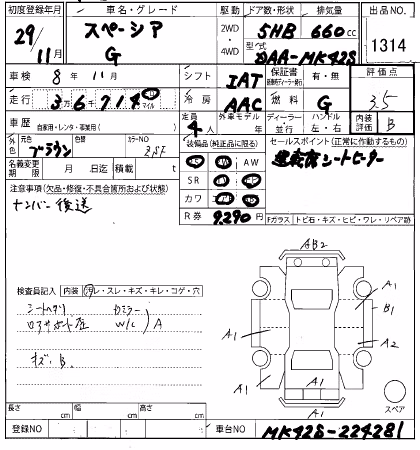 初度登録年月 車名・グレード 駆動 ドア数・形状 排気量 出品NO
29/11月 スペーシア G 2WD 4WD 5HB 660cc 1314
型式 DAA-MK42S
車検 8年 11月 シフト IAT 保証書 有・無 評価点
走行 3万6千714 マイル 冷房 AAC 燃料 G 3.5
車歴 自家用・レンタ・事業用( ) 定員 4人 外車モデル 年 ディーラー・並行 ハンドル 左・右 内装評価 B
外色 元色 ブラウン 色替 カラーNO
装備品(純正品に限る) セールスポイント(正常に作動するもの)
運転席シートヒーター
名義変更期限 月 日 積載 t
AW
SR
カワ
R券 9290円
注意事項(欠品・修復・不具合箇所および状態)
ナンバー後送
Fガラス トビ石・キズ・ヒビ・ワレ・リペア跡
検査員記入 内装 汚レ・スレ・キズ・キレ・コゲ・穴
W/C A
キズ・B
AB2
A1
A1
B1
A1
A2
A1
A1
スペア
長さ cm 幅 cm 高さ cm
登録NO 車台NO MK42S-224281